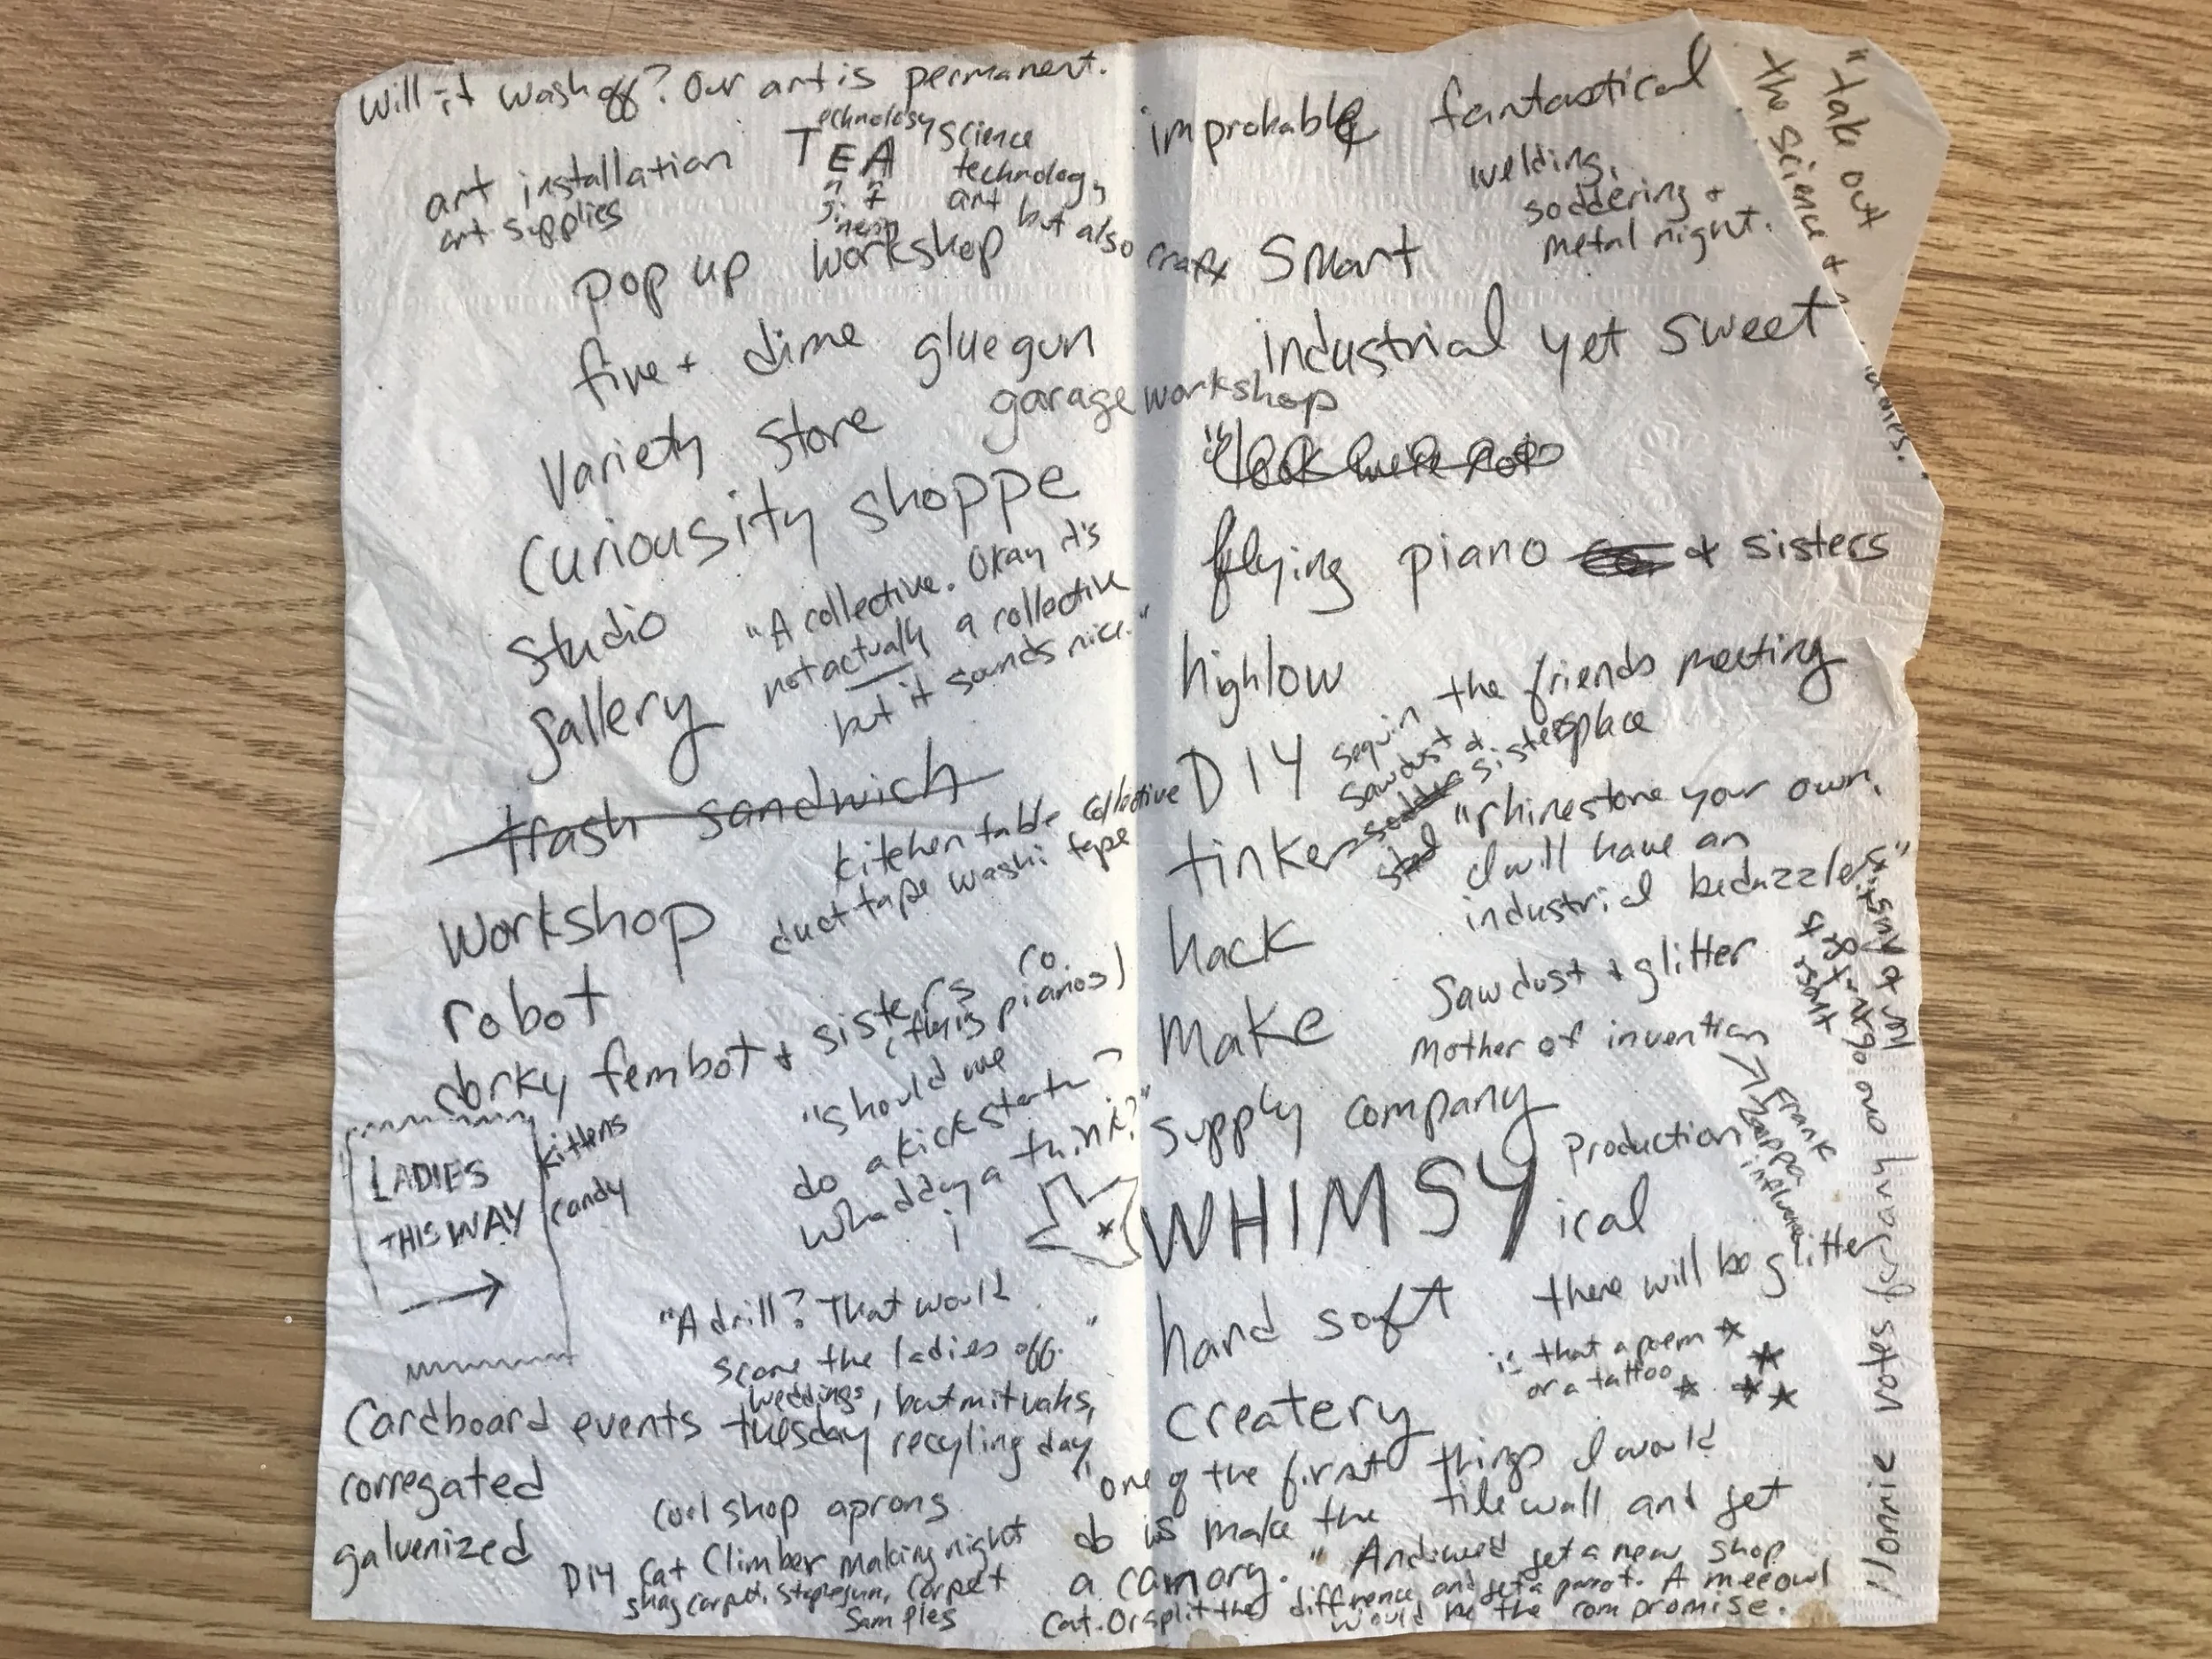 Will it wash off? Our art is permanent.
art installation
art supplies
TEA
echnology
science
technology
art but also craft
pop up workshop
five + dime gluegun
garage workshop
Variety store
Curiousity shoppe
Studio
"A collective. Okay it's
not actually a collective
but it sounds nice."
gallery
trash sandwich
kitchen table collective
duct tape washi tape
workshop
robot
dorky fembot + sisters co.
(flying pianos)
"should we
do a kickstarter
Whaddya think?"
LADIES
THIS WAY
kittens
candy
"A drill? That would
scare the ladies off."
weddings, batmitvahs,
Cardboard events tuesday recycling day
corregated
galvenized
cool shop aprons
DIY Cat Climber making night
shag carpet, staplegun, carpet
samples
improbable fantastical
welding,
soddering +
metal night.
"take out
the science +
Smart
industrial yet sweet
flying piano + sisters
highlow
the friends meeting
place
DIY
sequin
sawdust & sisters
tinker
"rhinestone your own.
I will have an
industrial bedazzler"
hack
Sawdust + glitter
make
Mother of invention
Frank
Zappa
influence
supply company
Production
WHIMSY ical
there will be glitter
is that a poem
or a tattoo
hand soft
createry
"one of the first things I would
do is make the tile wall and get
a canary." And we'd get a new shop
cat. Or split the difference and get a parrot. A meeowl
would be the compromise.
votes for any one